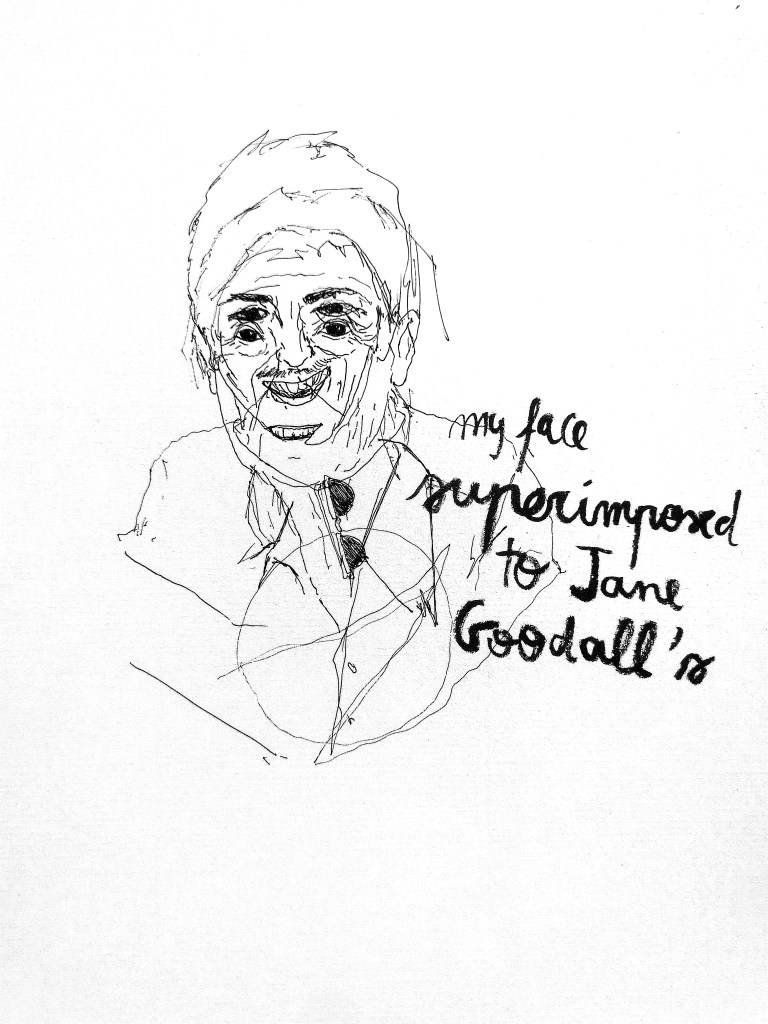 my face
superimposed
to Jane
Goodall's